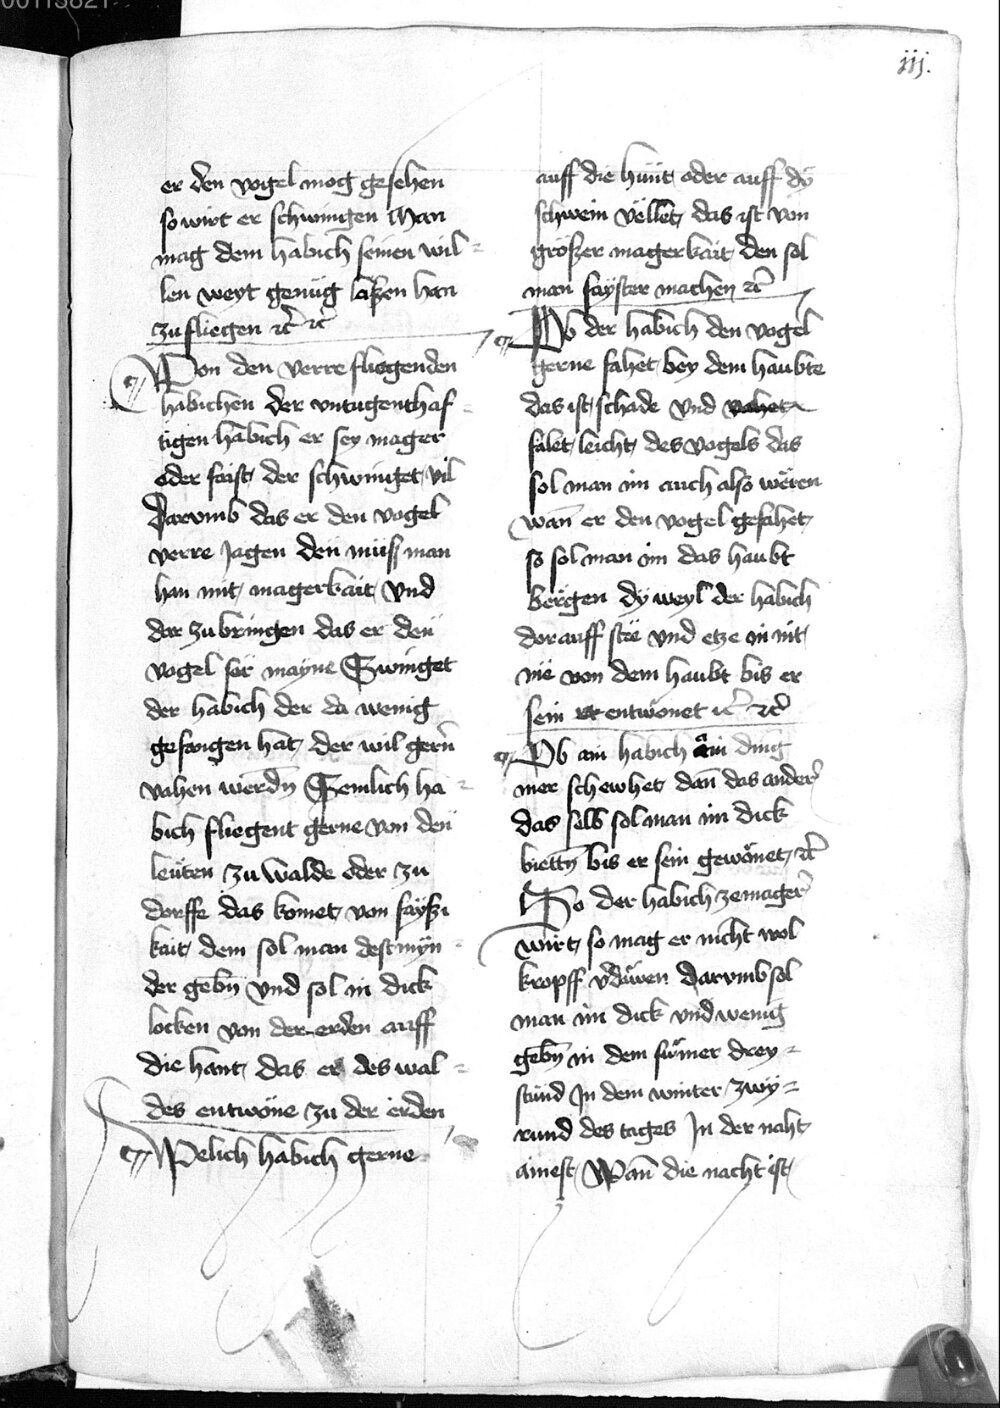 00113821
iij.
er den vogel mog gesehen
so wirt er schwingen Man
mag dem habich seinen wil-
len weyt genüg laßen han
zu fliegen etc etc
Von den verre fliegenden
habichen der vntugenthaf-
tigen habich er sey mager
oder faist der schwinget vil
Darvmb das er den vogel
verre Jagen den müß man
han mit magerkait Vnd
dar zu bringen das er den
vogel ser mayne Swinget
der habich der da wenig
gefangen hat der wil gern
vahen werdn Semlich ha-
bich fliegent gerne von den
leüten zu walde oder zu
dorffe das komet von fayßi
kait dem sol man destmyn-
der gebn Vnd sol in dick
locken von der erden auff
die hant das er des wal-
des entwöne zu der erden
Welich habich gerne
auff die hünt oder auff dy
schwein vellet das ist von
größer magerkait den sol
man fayster machen etc
Ob der habich den vogel
gerne fahet bey dem haubte
das ist schade Vnd vahet
fälet leicht des vogels das
sol man im auch also weren
wan er den vogel gefahet
so sol man im das haubt
bergen dy weyl der habich
dorauff ste vnd etze in nit
me von dem haubt bis er
sein entwönet etc etc
Ob ain habich ain ding
mer schewhet dan das ander
das selb sol man im dick
bietn bis er sein gewönet etc
So der habich ze mager
wirt so mag er nicht wol
kropff vdäwen Darvmb sol
man im dick vnd wenig
gebn in dem sumer drey-
stünd In dem winter zwy-
rund des tages In der naht
ainest Wan die nacht ist